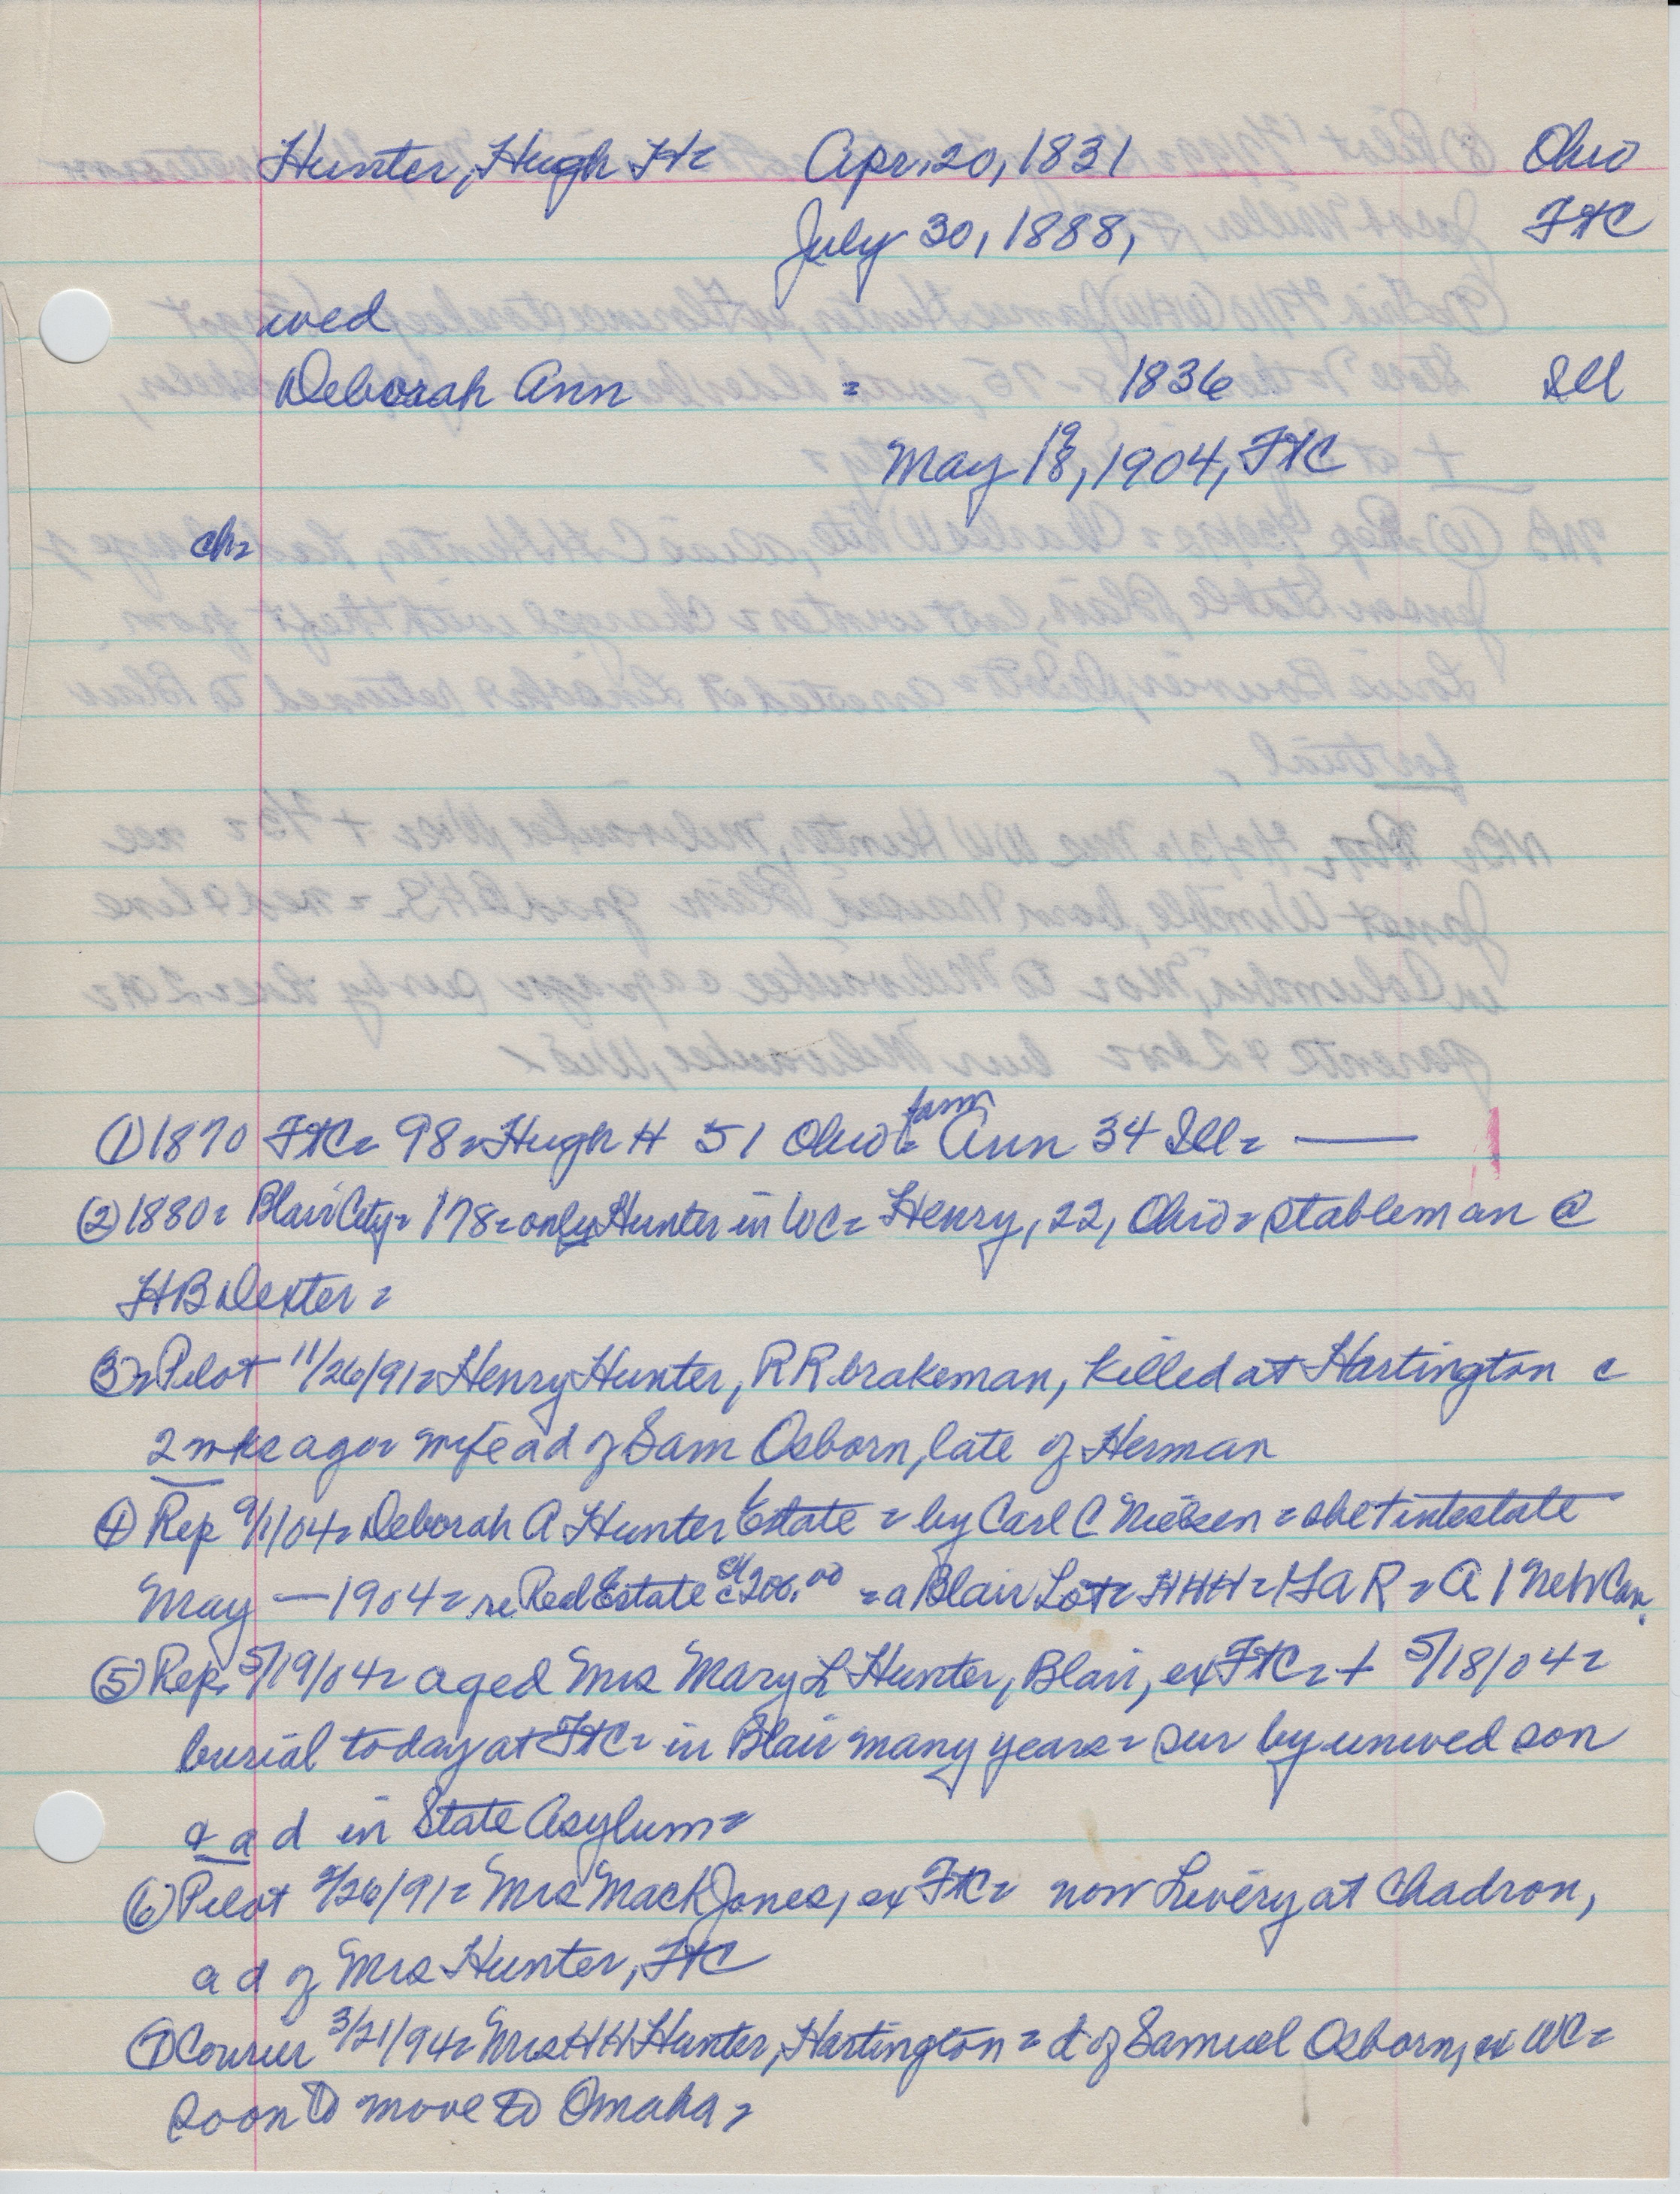 Hunter, Hugh H= Apr. 20, 1831 Ohio
July 30, 1888, FtC
wed
Deborah Ann = 1836 Ill
May 18, 1904, FtC
19
ch=
farm
① 1870 FtC= 98= Hugh H 51 Ohio= Ann 34 Ill= —
② 1880= Blair City= 178= only Hunter in WC= Henry, 22, Ohio= stableman @
HB Dexter=
③= Pilot 11/26/91= Henry Hunter, RR brakeman, killed at Hartington c
2 wks ago= wife a d of Sam Osborn, late of Herman
④ Rep 9/1/04= Deborah A Hunter Estate = by Carl C Nielsen = she + intestate
May — 1904= re Real Estate c $200.00 = a Blair Lot= HHH= GAR= A 1 Neb Cav.
⑤ Rep. 5/19/04= aged Mrs Mary L Hunter, Blair, ex FtC= + 5/18/04=
burial today at FtC= in Blair many years= sur by unwed son
& a d in State Asylum=
⑥ Pilot /26/91= Mrs Mack Jones, ex FtC= now Livery at Chadron,
a d of Mrs Hunter, FtC
⑦ Courier 3/21/94= Mrs HH Hunter, Hartington= d of Samuel Osborn, ex WC=
soon to move to Omaha=